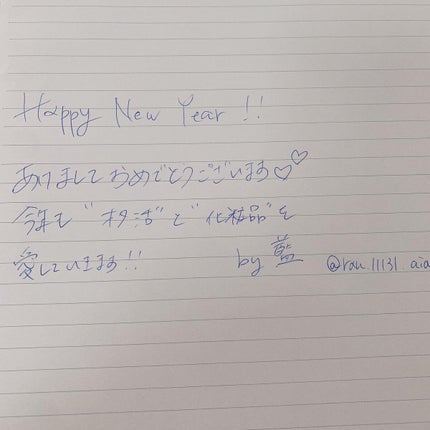 Happy New Year !!
あけましておめでとうございます♡♡
今年も"オタ活"と"化粧品"を
愛していきます!! by 藍 @rau.11131.aia